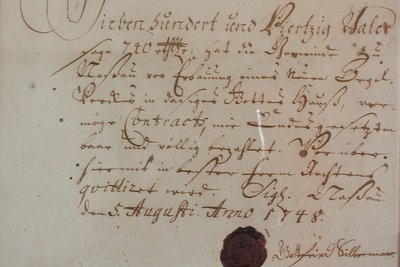 Sieben hundert und Viertzig Thaler
sage 740 rthlr: hat die Gemeinde zu
Nassau vor Erbauung eines Neuen Orgel-
Wercks in dasiges Gottes Hauß, ver-
möge Contracts, mir Endes gesetztem
baar und völlig bezahlet. Wor über
hiermit in bester Form Rechtens
qvittiret wird. Sigl. Nassau
den 5. Augusti. Anno 1748.
Gottfried Silbermann